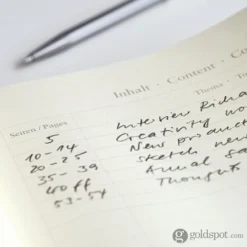 Inhalt · Content · Co
Seiten / Pages Thema
5 Interview Richa
10-14 Creativity wo
20-25 New product
35-39 Sketch new
40 ff Annual Sa
53-54 Thoughts
goldspot.com